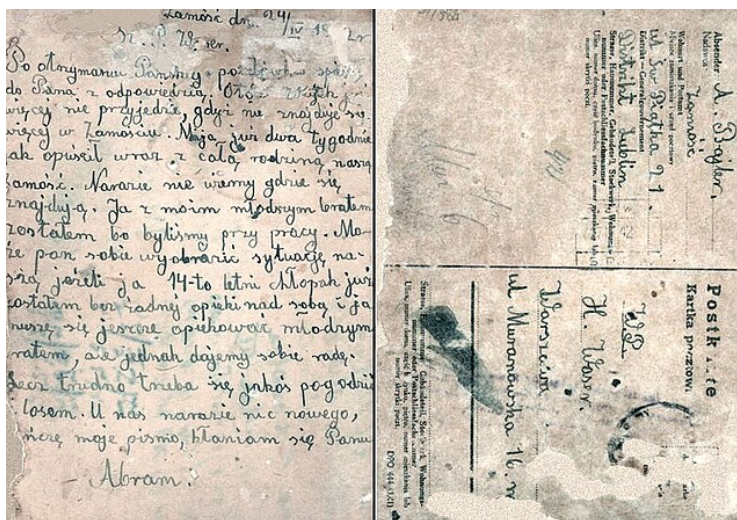 Zamość dn. 24/IV 1942 r
Sz. P. Waser.
Po otrzymaniu Pańskiej pocztówki spieszę
do Pana z odpowiedzią. Otóż
więcej nie przyjedzie, gdyż nie znajduje się
więcej w Zamościu. Mija już dwa tygodnie
jak opuścił wraz z całą rodziną naszą
Zamość. Narazie nie wiemy gdzie się
znajdują. Ja z moim młodszym bratem
zostałem bo byliśmy przy pracy. Mo-
że pan sobie wyobrazić sytuację na-
szą jeżeli ja 14-to letni chłopak już
zostałem bez żadnej opieki nad sobą i ja
muszę się jeszcze opiekować młodszym
bratem, ale jednak dajemy sobie radę.
Lecz trudno trzeba się jakoś pogodzić
losem. U nas narazie nic nowego,
kończę moje pismo, kłaniam się Panu
- Abram.
Absender A. Bajler.
Nadawca
Zamość
Wohnort und Postamt
Miejsce zamieszkania i urząd pocztowy
ul. Św. Piątka 21.
Distrikt — Generalgouvernement
Distrikt Lublin
Strasse, Hausnummer, Gebäudeteil, Stockwerk, Wohnungs-
nummer oder Postschliessfachnummer
Ulica, numer domu, część budynku, piętro, numer mieszkania lub
numer skrytki poczt.
Postkarte
Kartka pocztowa
W.P.
H. Waser.
Warszawa
ul Muranowska 16. m
Strasse, Hausnummer, Gebäudeteil, Stockwerk, Wohnungs-
nummer oder Postschliessfachnummer
Ulica, numer domu, część budynku, piętro, numer mieszkania lub
numer skrytki poczt.